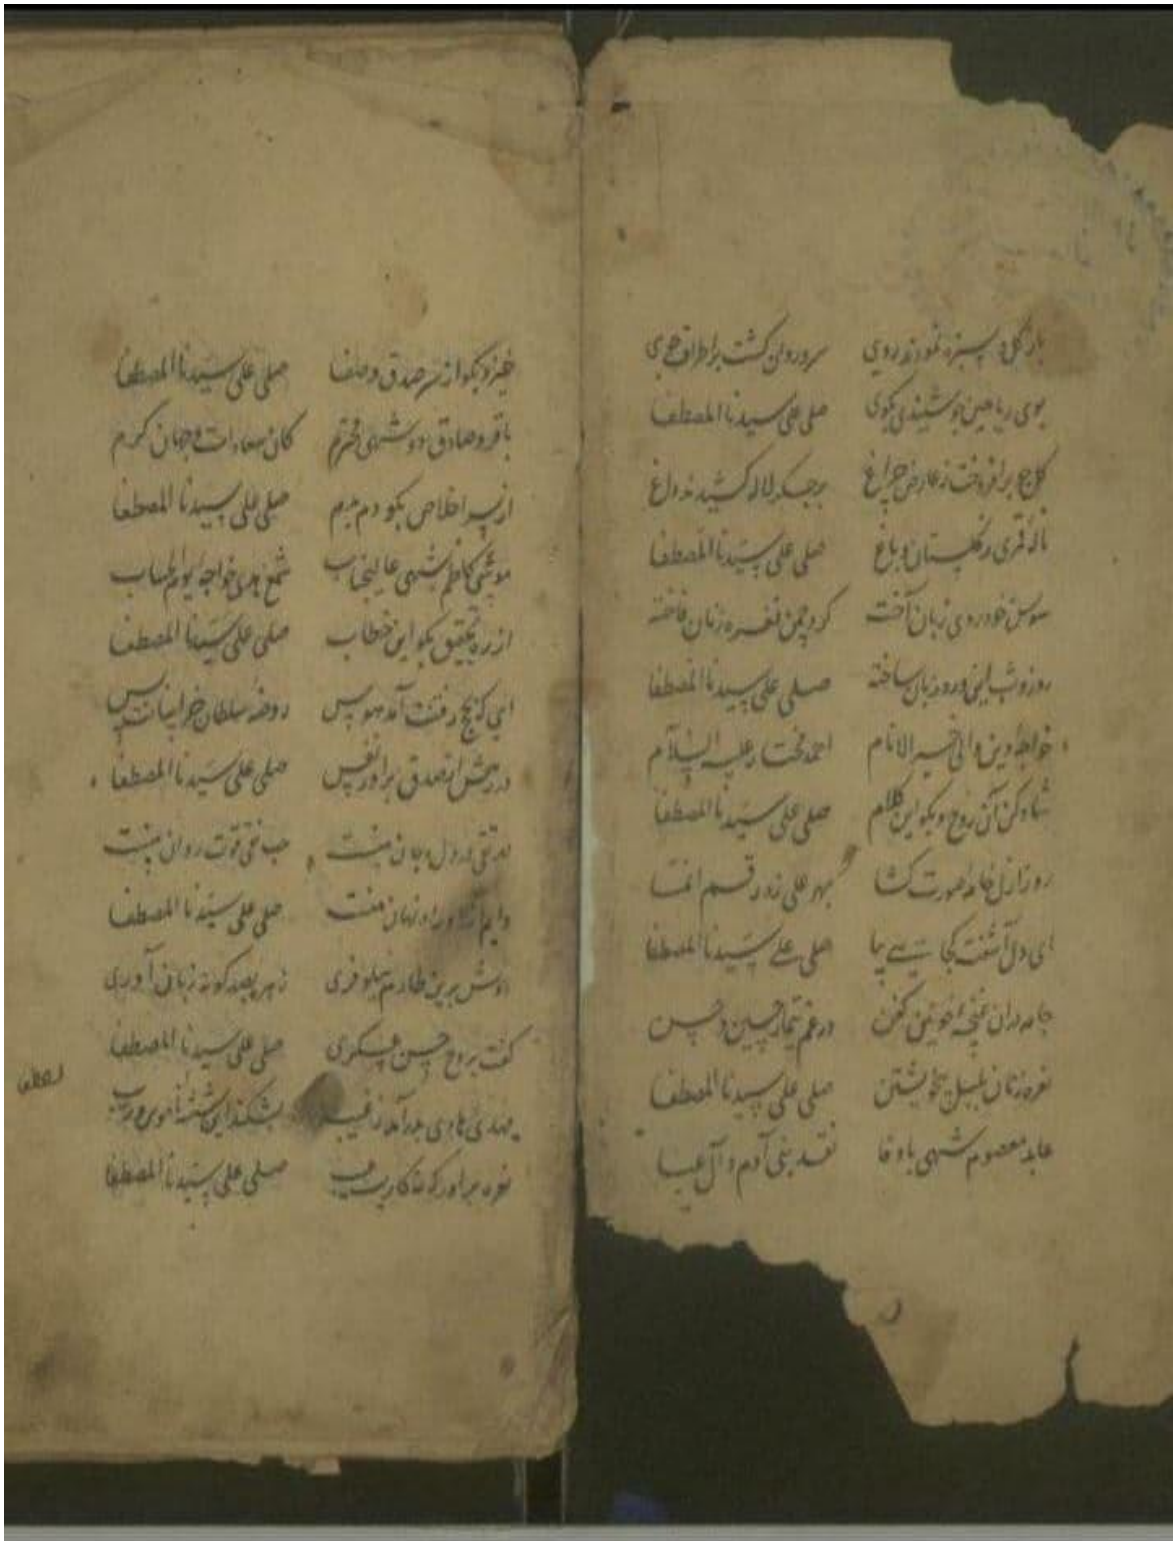 باز گل و سبزه نمودند روی سرو روان گشت بر اطراف جوی
بوی ریاحین چو شنیدی بکوی صلی علی سیدنا المصطفا
گل چو برافروخت ز عارض چراغ بر جگر لاله کشیدند داغ
نالهٔ قمری ز گلستان و باغ صلی علی سیدنا المصطفا
سوسن خودروی زبان آخته گرد چمن نغره زنان فاخته
روز و شب این ورد زبان ساخته صلی علی سیدنا المصطفا
خواجهٔ دین والی خیر الانام احمد مختار علیه السلام
شاد کن آن روح و بکو این کلام صلی علی سیدنا المصطفا
روز ازل خامهٔ صورت کشا بهر علی زد رقم انما
ای دل آشفته کجایی بیا صلی علی سیدنا المصطفا
جامه دران غنچهٔ خونین کفن در غم تیمار حسین و حسن
نعره زنان بلبل بیخویشتن صلی علی سیدنا المصطفا
عابد معصوم شهی باوفا نقد بنی آدم و آل عبا
خیز و بکو از سر صدق و صفا صلی علی سیدنا المصطفا
باقر و صادق دو شهی محترم کان سعادات و جهان کرم
از سر اخلاص بکو دم بدم صلی علی سیدنا المصطفا
موسی کاظم شهی عالیجناب شمع هدی خواجهٔ یوم الحساب
از ره تحقیق بکو این خطاب صلی علی سیدنا المصطفا
ای که بحج رفتنت آمد هوس روضهٔ سلطان خراسانت بس
در رهش از صدق برآور نفس صلی علی سیدنا المصطفا
در دل و جان منست حب نقی قوت روان منست
دایم صلی علی سیدنا المصطفا
دوش برین طارم نیلوفری زهره بصد کونه زبان آوری
کفت بروح حسن عسکری صلی علی سیدنا المصطفا
مهدی هادی بدر آمد ز غیب بشکند این
نعره برآور که نه کاریست عیب صلی علی سیدنا المصطفا